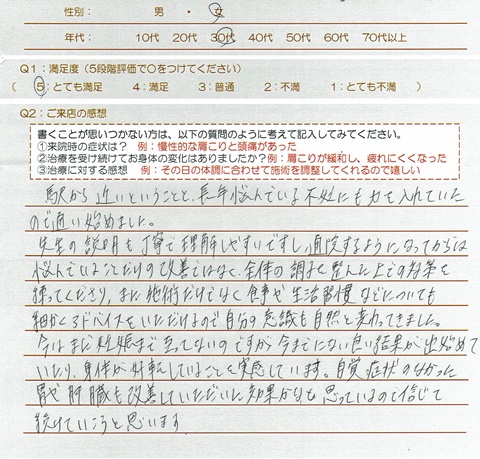 性別： 男 ・ 女
年代： 10代 20代 30代 40代 50代 60代 70代以上
Q1：満足度（5段階評価で○をつけてください）
（ 5：とても満足 4：満足 3：普通 2：不満 1：とても不満 ）
Q2：ご来店の感想
書くことが思いつかない方は、以下の質問のように考えて記入してみてください。
①来院時の症状は？ 例：慢性的な肩こりと頭痛があった
②治療を受け続けてお身体の変化はありましたか？例：肩こりが緩和し、疲れにくくなった
③治療に対する感想 例：その日の体調に合わせて施術を調整してくれるので嬉しい
駅から近いということと、長年悩んでいる不妊にも力を入れていた
ので通い始めました。
先生の説明も丁寧で理解しやすいですし、通院するようになってからは
悩んでいることだけの改善ではなく、全体の調子を整えた上での対策を
練ってくださり、また施術だけでなく食事や生活習慣などについても
細かくアドバイスをいただけるので自分の意識も自然と変わってきました。
今はまだ妊娠まで至ってないのですが今までにない良い結果が出始めて
いたり、身体が好転していることを実感しています。自覚症状のなかった
胃や肝臓も改善していただいた効果かなと思っているので信じて
続けていこうと思います